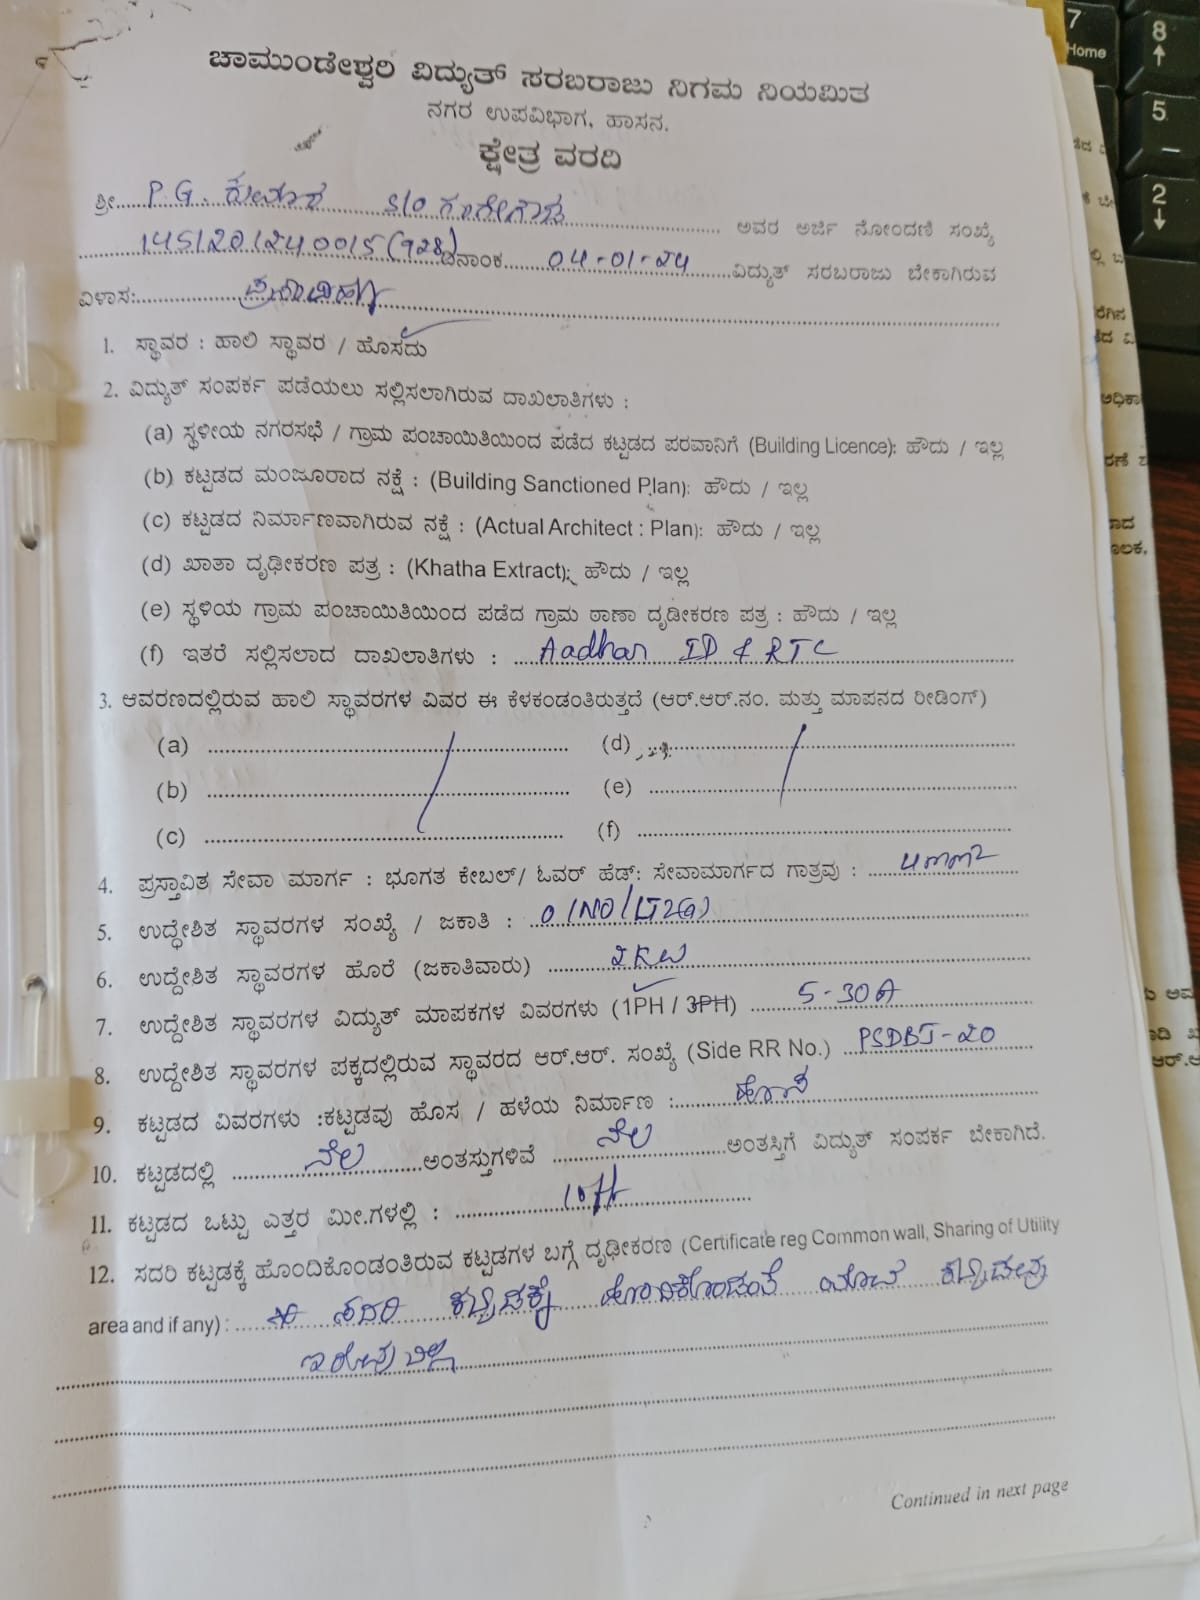 ಚಾಮುಂಡೇಶ್ವರಿ ವಿದ್ಯುತ್ ಸರಬರಾಜು ನಿಗಮ ನಿಯಮಿತ
ನಗರ ಉಪವಿಭಾಗ, ಹಾಸನ.
ಕ್ಷೇತ್ರ ವರದಿ
ಶ್ರೀ..... P.G. ಕುಮಾರ S/o ..... ಅವರ ಅರ್ಜಿ ನೋಂದಣಿ ಸಂಖ್ಯೆ
ದಿನಾಂಕ..... 04-01-24 .....ವಿದ್ಯುತ್ ಸರಬರಾಜು ಬೇಕಾಗಿರುವ
ವಿಳಾಸ:.....
1. ಸ್ಥಾವರ : ಹಾಲಿ ಸ್ಥಾವರ / ಹೊಸದು
2. ವಿದ್ಯುತ್ ಸಂಪರ್ಕ ಪಡೆಯಲು ಸಲ್ಲಿಸಲಾಗಿರುವ ದಾಖಲಾತಿಗಳು :
(a) ಸ್ಥಳೀಯ ನಗರಸಭೆ / ಗ್ರಾಮ ಪಂಚಾಯಿತಿಯಿಂದ ಪಡೆದ ಕಟ್ಟಡದ ಪರವಾನಿಗೆ (Building Licence): ಹೌದು / ಇಲ್ಲ
(b) ಕಟ್ಟಡದ ಮಂಜೂರಾದ ನಕ್ಷೆ : (Building Sanctioned Plan): ಹೌದು / ಇಲ್ಲ
(c) ಕಟ್ಟಡದ ನಿರ್ಮಾಣವಾಗಿರುವ ನಕ್ಷೆ : (Actual Architect : Plan): ಹೌದು / ಇಲ್ಲ
(d) ಖಾತಾ ದೃಢೀಕರಣ ಪತ್ರ : (Khatha Extract): ಹೌದು / ಇಲ್ಲ
(e) ಸ್ಥಳಿಯ ಗ್ರಾಮ ಪಂಚಾಯಿತಿಯಿಂದ ಪಡೆದ ಗ್ರಾಮ ಠಾಣಾ ದೃಡೀಕರಣ ಪತ್ರ : ಹೌದು / ಇಲ್ಲ
(f) ಇತರೆ ಸಲ್ಲಿಸಲಾದ ದಾಖಲಾತಿಗಳು : ... Aadhar ID & RTC
3. ಆವರಣದಲ್ಲಿರುವ ಹಾಲಿ ಸ್ಥಾವರಗಳ ವಿವರ ಈ ಕೆಳಕಂಡಂತಿರುತ್ತದೆ (ಆರ್.ಆರ್.ನಂ. ಮತ್ತು ಮಾಪನದ ರೀಡಿಂಗ್)
(a) ..... (d) .....
(b) ..... (e) .....
(c) ..... (f) .....
4. ಪ್ರಸ್ತಾವಿತ ಸೇವಾ ಮಾರ್ಗ : ಭೂಗತ ಕೇಬಲ್/ ಓವರ್ ಹೆಡ್: ಸೇವಾಮಾರ್ಗದ ಗಾತ್ರವು : ..... 4mm2
5. ಉದ್ದೇಶಿತ ಸ್ಥಾವರಗಳ ಸಂಖ್ಯೆ / ಜಕಾತಿ :
6. ಉದ್ದೇಶಿತ ಸ್ಥಾವರಗಳ ಹೊರೆ (ಜಕಾತಿವಾರು) ..... 2KW
7. ಉದ್ದೇಶಿತ ಸ್ಥಾವರಗಳ ವಿದ್ಯುತ್ ಮಾಪಕಗಳ ವಿವರಗಳು (1PH / 3PH) ..... 5-30A
8. ಉದ್ದೇಶಿತ ಸ್ಥಾವರಗಳ ಪಕ್ಕದಲ್ಲಿರುವ ಸ್ಥಾವರದ ಆರ್.ಆರ್. ಸಂಖ್ಯೆ (Side RR No.) ... PSDBJ-20
9. ಕಟ್ಟಡದ ವಿವರಗಳು :ಕಟ್ಟಡವು ಹೊಸ / ಹಳೆಯ ನಿರ್ಮಾಣ :..... ಹೊಸ
10. ಕಟ್ಟಡದಲ್ಲಿ ..... ನೆಲ .....ಅಂತಸ್ತುಗಳಿವೆ ..... ನೆಲ .....ಅಂತಸ್ತಿಗೆ ವಿದ್ಯುತ್ ಸಂಪರ್ಕ ಬೇಕಾಗಿದೆ.
11. ಕಟ್ಟಡದ ಒಟ್ಟು ಎತ್ತರ ಮೀ.ಗಳಲ್ಲಿ : ..... 10ft
12. ಸದರಿ ಕಟ್ಟಡಕ್ಕೆ ಹೊಂದಿಕೊಂಡಂತಿರುವ ಕಟ್ಟಡಗಳ ಬಗ್ಗೆ ದೃಢೀಕರಣ (Certificate reg Common wall, Sharing of Utility
area and if any) : ..... ಈ ಸದರಿ ಕಟ್ಟಡಕ್ಕೆ ಹೊಂದಿಕೊಂಡಂತೆ ಯಾವ ಕಟ್ಟಡವು
ಇರುವುದಿಲ್ಲ
Continued in next page
7
Home
8
5
2